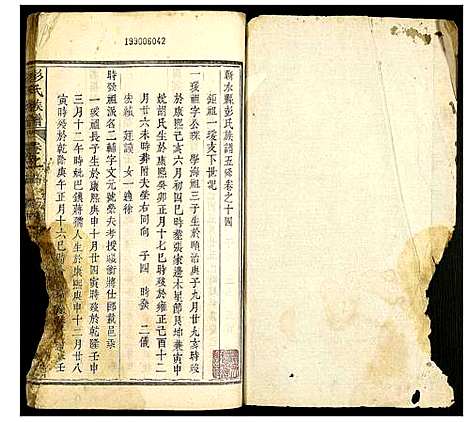 199006042
蘄水縣彭氏族譜五修卷之十四
鉅祖一瑷支下世記
一瑷祖字公琛 學海祖三子生於順治庚子九月廿九亥時歿
於康熙己亥六月初四巳時塟張家邊木星節艮坤兼寅申
妣胡氏生於康熙癸卯正月十七巳時歿於雍正己酉十二
月廿六未時葬附夫塋右同向 子四 時發 二儀
宏 廷 女一適徐
時發祖派名二輔字文元號榮夫考授 將仕郎載邑乘
一瑷祖長子生於康熙庚申十月廿四寅時歿於乾隆壬申
三月十二午時妣巴魏蔣孺人生於康熙庚申十二月廿八
寅時歿於乾隆庚午正月十六巳時
彭氏族譜 卷之